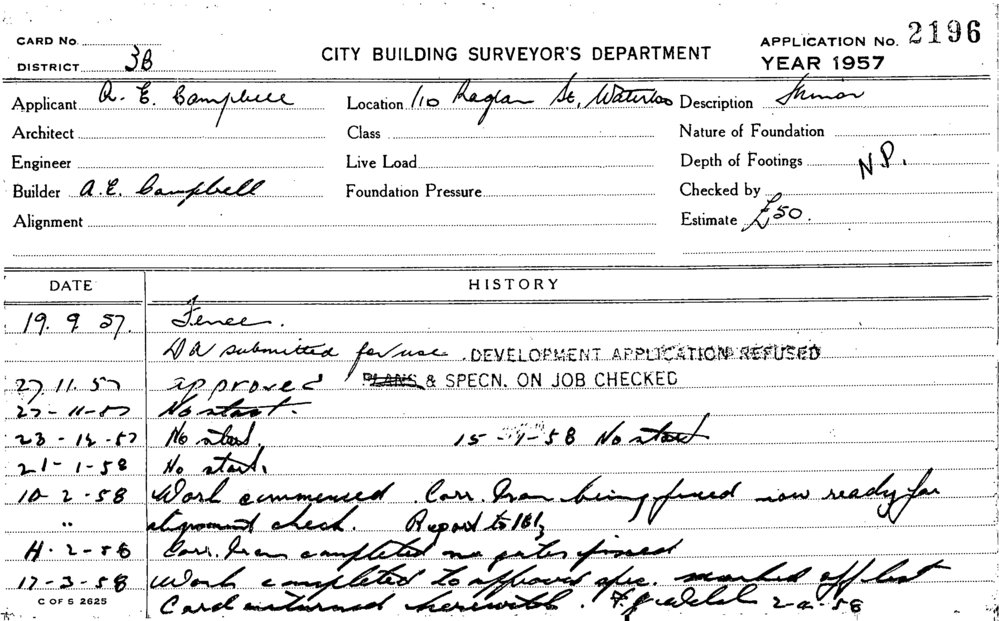 CARD No.
DISTRICT 3B
CITY BUILDING SURVEYOR'S DEPARTMENT
APPLICATION No. 2196
YEAR 1957
Applicant A. E. Campbell Location 110 Raglan St, Waterloo Description Minor
Architect Class Nature of Foundation
Engineer Live Load Depth of Footings N.P.
Builder A.E. Campbell Foundation Pressure Checked by
Alignment Estimate £50.
DATE HISTORY
19. 9 57. Fence.
DA submitted for use. DEVELOPMENT APPLICATION REFUSED
27.11.57 approved PLANS & SPECN. ON JOB CHECKED
27-11-57 No start.
23-12-57 No start. 15-1-58 No start
21-1-58 No start.
10-2-58 Work commenced. Corr. Iron being fixed now ready for
" alignment check. Report to
2-58 Corr. Iron completed no gates fixed
17-3-58 Work completed to approved spec. marked off list
C OF S 2625 Card returned herewith. 58